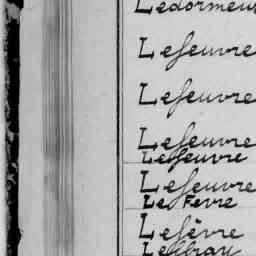 Ledormeur
Lefeuvre
Lefeuvre
Lefeuvre
Lefeuvre
Lefeuvre
Le Fevre
Lefèvre
Leffray